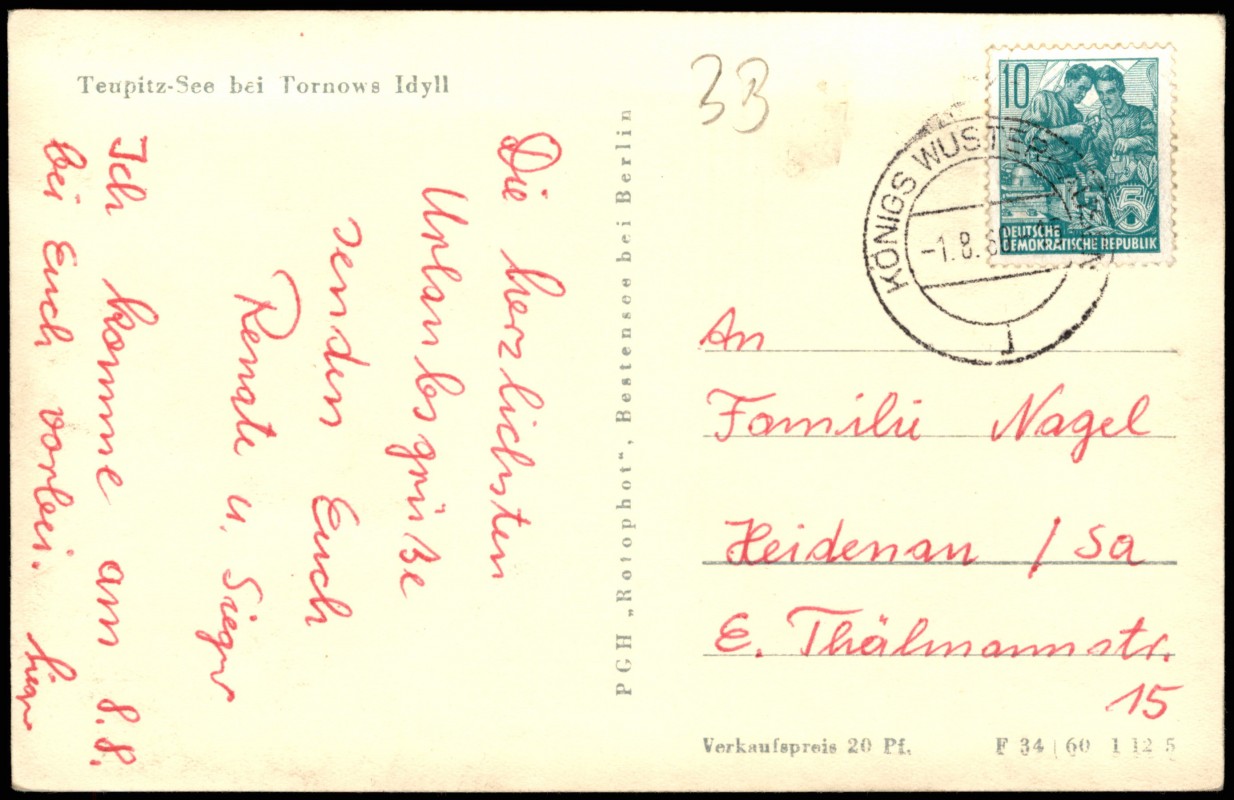 Teupitz-See bei Tornows Idyll
Die herzlichsten
Urlaubsgrüße
senden Euch
Renate u. Sieger
Ich komme am 8.8.
bei Euch vorbei.
PGH „Rotophot“, Bestensee bei Berlin
33
10
5
DEUTSCHE
DEMOKRATISCHE REPUBLIK
KÖNIGS WUSTER
-1.8.
An
Familie Nagel
Heidenau / Sa
E. Thälmannstr.
15
Verkaufspreis 20 Pf.
F 34 | 60 1 12 5